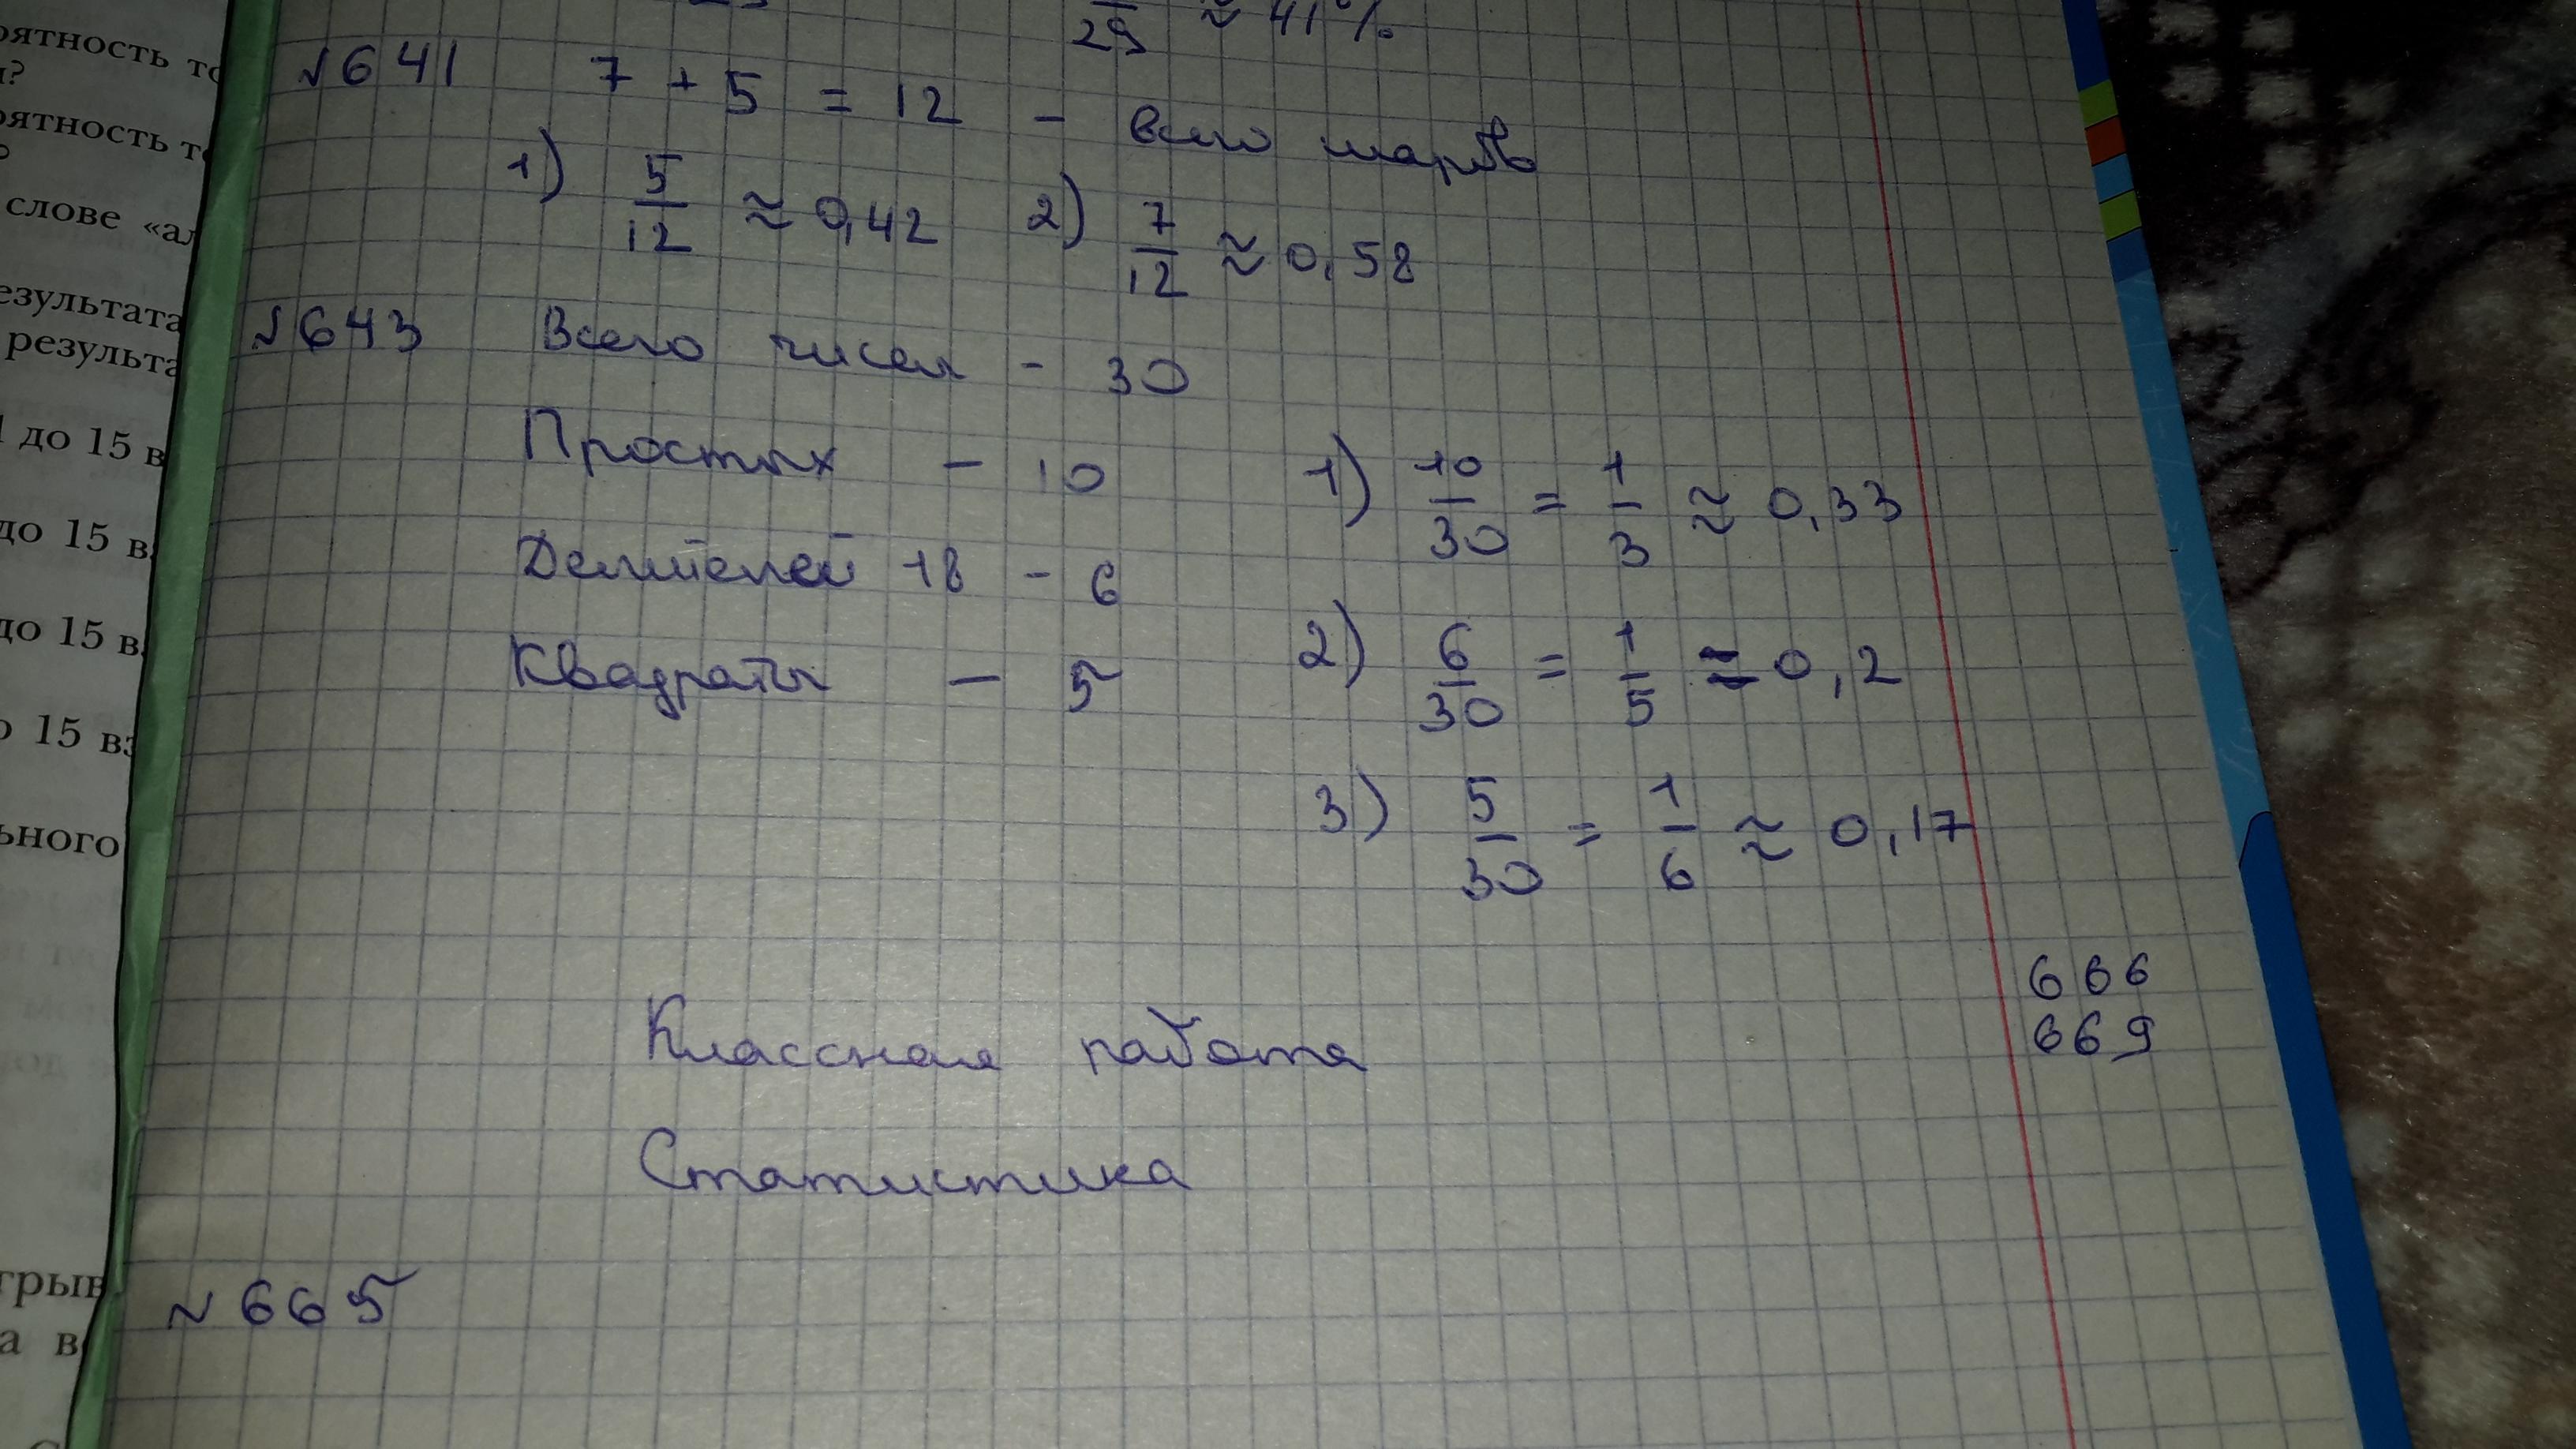 оятность то
29 ≈ 41%
и?
№641 7 + 5 = 12 – всего шаров
оятность то
1) 5/12 ≈ 0,42 2) 7/12 ≈ 0,58
слове «ал
езультата
результа
№643 Всего чисел - 30
Простых – 10 1) 10/30 = 1/3 ≈ 0,33
1 до 15 в
Делителей 18 - 6
до 15 в
Квадраты – 5 2) 6/30 = 1/5 = 0,2
до 15 в
о 15 вз
3) 5/30 = 1/6 ≈ 0,17
ьного
666
669
Классная работа
Статистика
№665
грыв
а в